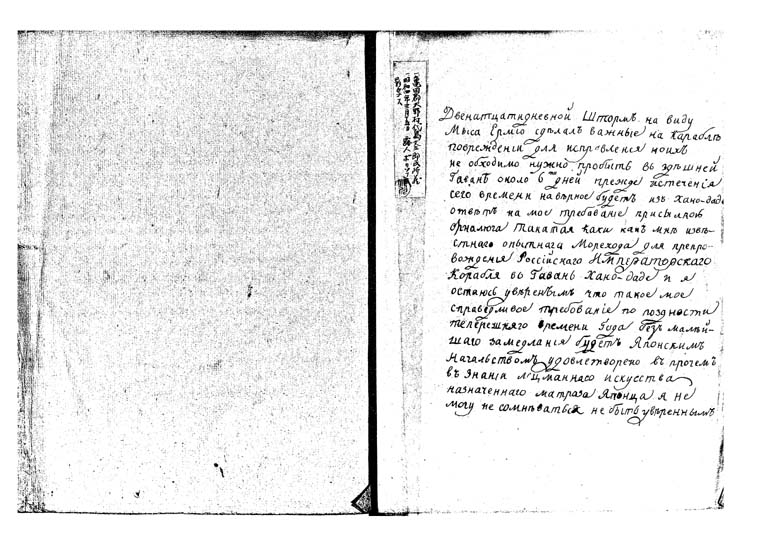 Двенатцатидневной Штормъ на виду
Мыса Ермiо сдѣлалъ важные на Караблѣ
повреждении для исправленiя коихъ
не обходимо нужно пробыть въ здѣшней
Гаванѣ около 6 дней прежде истеченiя
сего времени навѣрное будетъ изъ Хано-даде
отвѣтъ на мое требованiе присылкою
Такатая каки какъ мнѣ извѣ-
стнаго опытнаго Морехода для препро-
вожденiя Россiйскаго Императорскаго
Корабля въ Гавань Хано-даде и я
остаюсь увѣренымъ что такое мое
справедливое требованiе по поздности
теперешняго времени Года безъ малѣй-
шаго замедланiя будетъ Японскимъ
Начальствомъ удовлетворено въ протчемъ
въ Знанiи искусства
назначеннаго матраза Японца я не
могу не сомнѣваться не быть увѣреннымъ